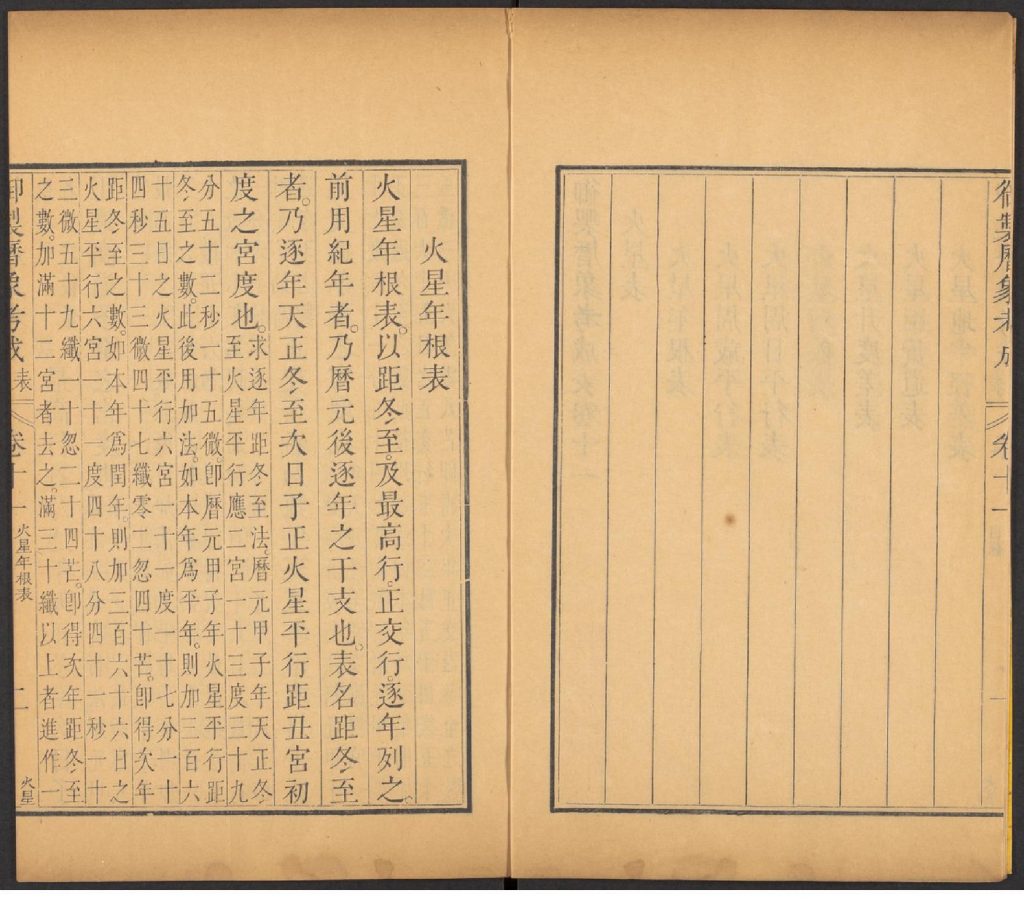 御製曆象考成
卷十一
火星年根表
火星年根表。以距冬至。及最高行。正交行。逐年列之。
前用紀年者。乃曆元後逐年之干支也。表名距冬至
者。乃逐年天正冬至次日子正火星平行距丑宮初
度之宮度也。
求逐年距冬至法。曆元甲子年天正冬
至火星平行應二宮一十三度三十九
分五十二秒一十五微。卽曆元甲子年火星平行距
冬至之數。此後用加法。如本年爲平年。則加三百六
十五日之火星平行六宮一十一度一十七分一十
四秒三十三微四十七纖零二忽四十芒。卽得次年
距冬至之數。如本年爲閏年。則加三百六十六日之
火星平行六宮一十一度四十八分四十一秒一十
三微五十九纖一十忽二十四芒。卽得次年距冬至
之數。加滿十二宮者去之。滿三十纖以上者進作一
御製曆象考成表
卷十一
火星年根表
二
火星